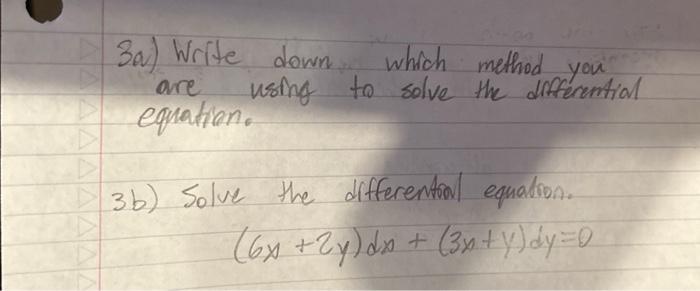 3a) Write down which method you
are using to solve the differential
equation.
3b) Solve the differential equation.
(6x + 2y)dx + (3x + y)dy = 0